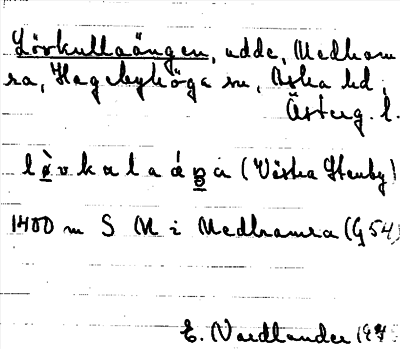 Lövkullaängen, udde, Medham
ra, Hagebyhöga sn, Aska hd,
Österg. l.
(Västra Stenby)
1400 m S M i Medhamra (G54)
E. Nordlander